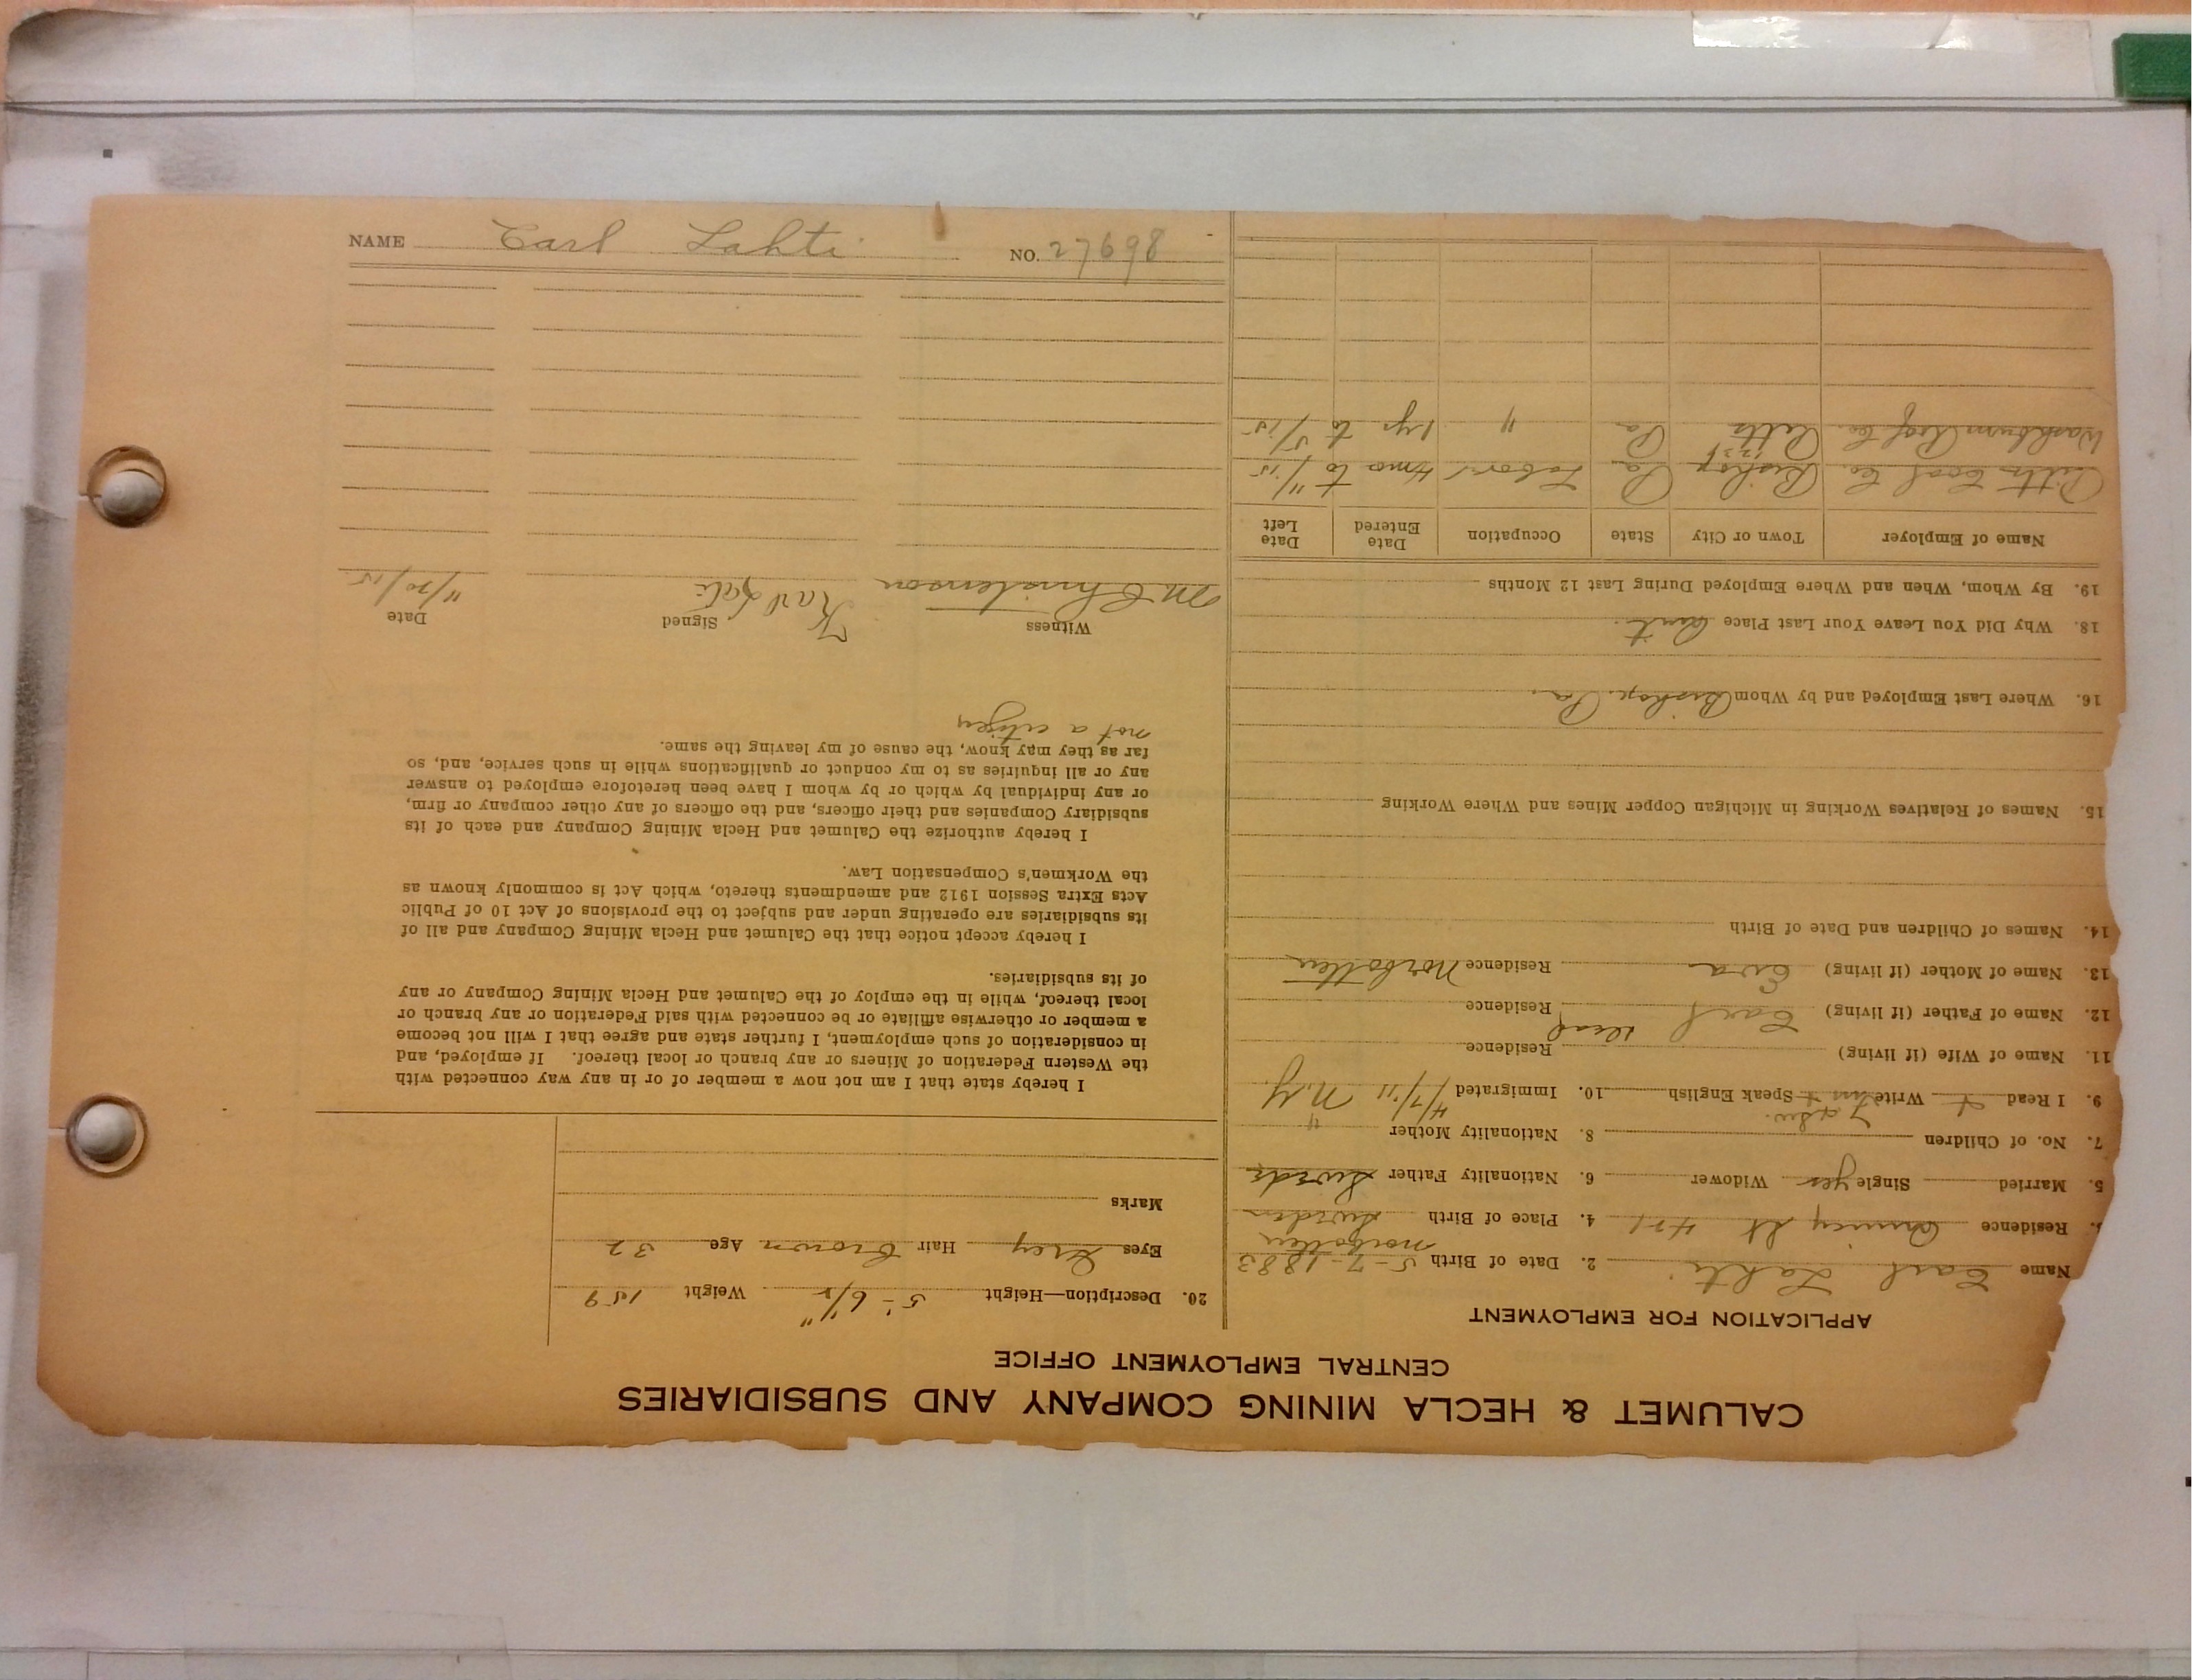 CALUMET & HECLA MINING COMPANY AND SUBSIDIARIES
CENTRAL EMPLOYMENT OFFICE
APPLICATION FOR EMPLOYMENT
Name Carl Lahti 2. Date of Birth 5-7-1883
Norbotten
Residence Quincy St 421 4. Place of Birth Sweden
5. Married Single yes Widower 6. Nationality Father Swede
7. No. of Children 8. Nationality Mother "
9. I Read Write Speak English 10. Immigrated 4/7/11 N.Y.
11. Name of Wife (if living) Residence
12. Name of Father (if living) Carl dead Residence
13. Name of Mother (if living) Eva Residence Norbotten
14. Names of Children and Date of Birth
15. Names of Relatives Working in Michigan Copper Mines and Where Working
16. Where Last Employed and by Whom Bishop. Pa.
18. Why Did You Leave Your Last Place Quit.
19. By Whom, When and Where Employed During Last 12 Months
Name of Employer Town or City State Occupation Date Entered Date Left
Pitts Coal Co. Bishop Pa Labor 4 mo to 11/15
Washburn Coal Co. Pitts Pa " 1 yr to 5/15
20. Description—Height 5'-6 1/2" Weight 159
Eyes Grey Hair Brown Age 32
Marks
I hereby state that I am not now a member of or in any way connected with
the Western Federation of Miners or any branch or local thereof. If employed, and
in consideration of such employment, I further state and agree that I will not become
a member or otherwise affiliate or be connected with said Federation or any branch or
local thereof, while in the employ of the Calumet and Hecla Mining Company or any
of its subsidiaries.
I hereby accept notice that the Calumet and Hecla Mining Company and all of
its subsidiaries are operating under and subject to the provisions of Act 10 of Public
Acts Extra Session 1912 and amendments thereto, which Act is commonly known as
the Workmen's Compensation Law.
I hereby authorize the Calumet and Hecla Mining Company and each of its
subsidiary Companies and their officers, and the officers of any other company or firm,
or any individual by which or by whom I have been heretofore employed to answer
any or all inquiries as to my conduct or qualifications while in such service, and, so
far as they may know, the cause of my leaving the same.
not a citizen
Witness Signed Date
M Christenson Karl Lati 11/20/15
NAME Carl Lahti NO. 27698